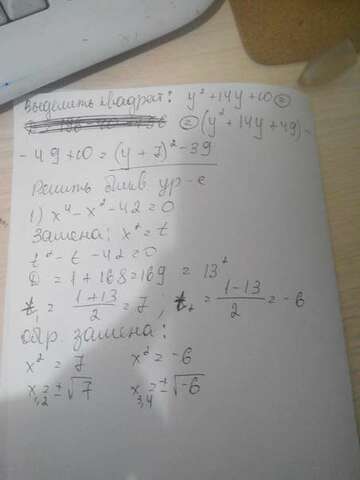 Выделить квадрат: y² + 14y + 10 =
= (y² + 14y + 49) -
- 49 + 10 = (y + 7)² - 39
Решить бикв. ур-е
1) x⁴ - x² - 42 = 0
Замена: x² = t
t² - t - 42 = 0
D = 1 + 168 = 169 = 13²
t₁ = (1+13)/2 = 7; t₂ = (1-13)/2 = -6
обр. замена:
x² = 7 x² = -6
x₁,₂ = ±√7 x₃,₄ = ±√-6